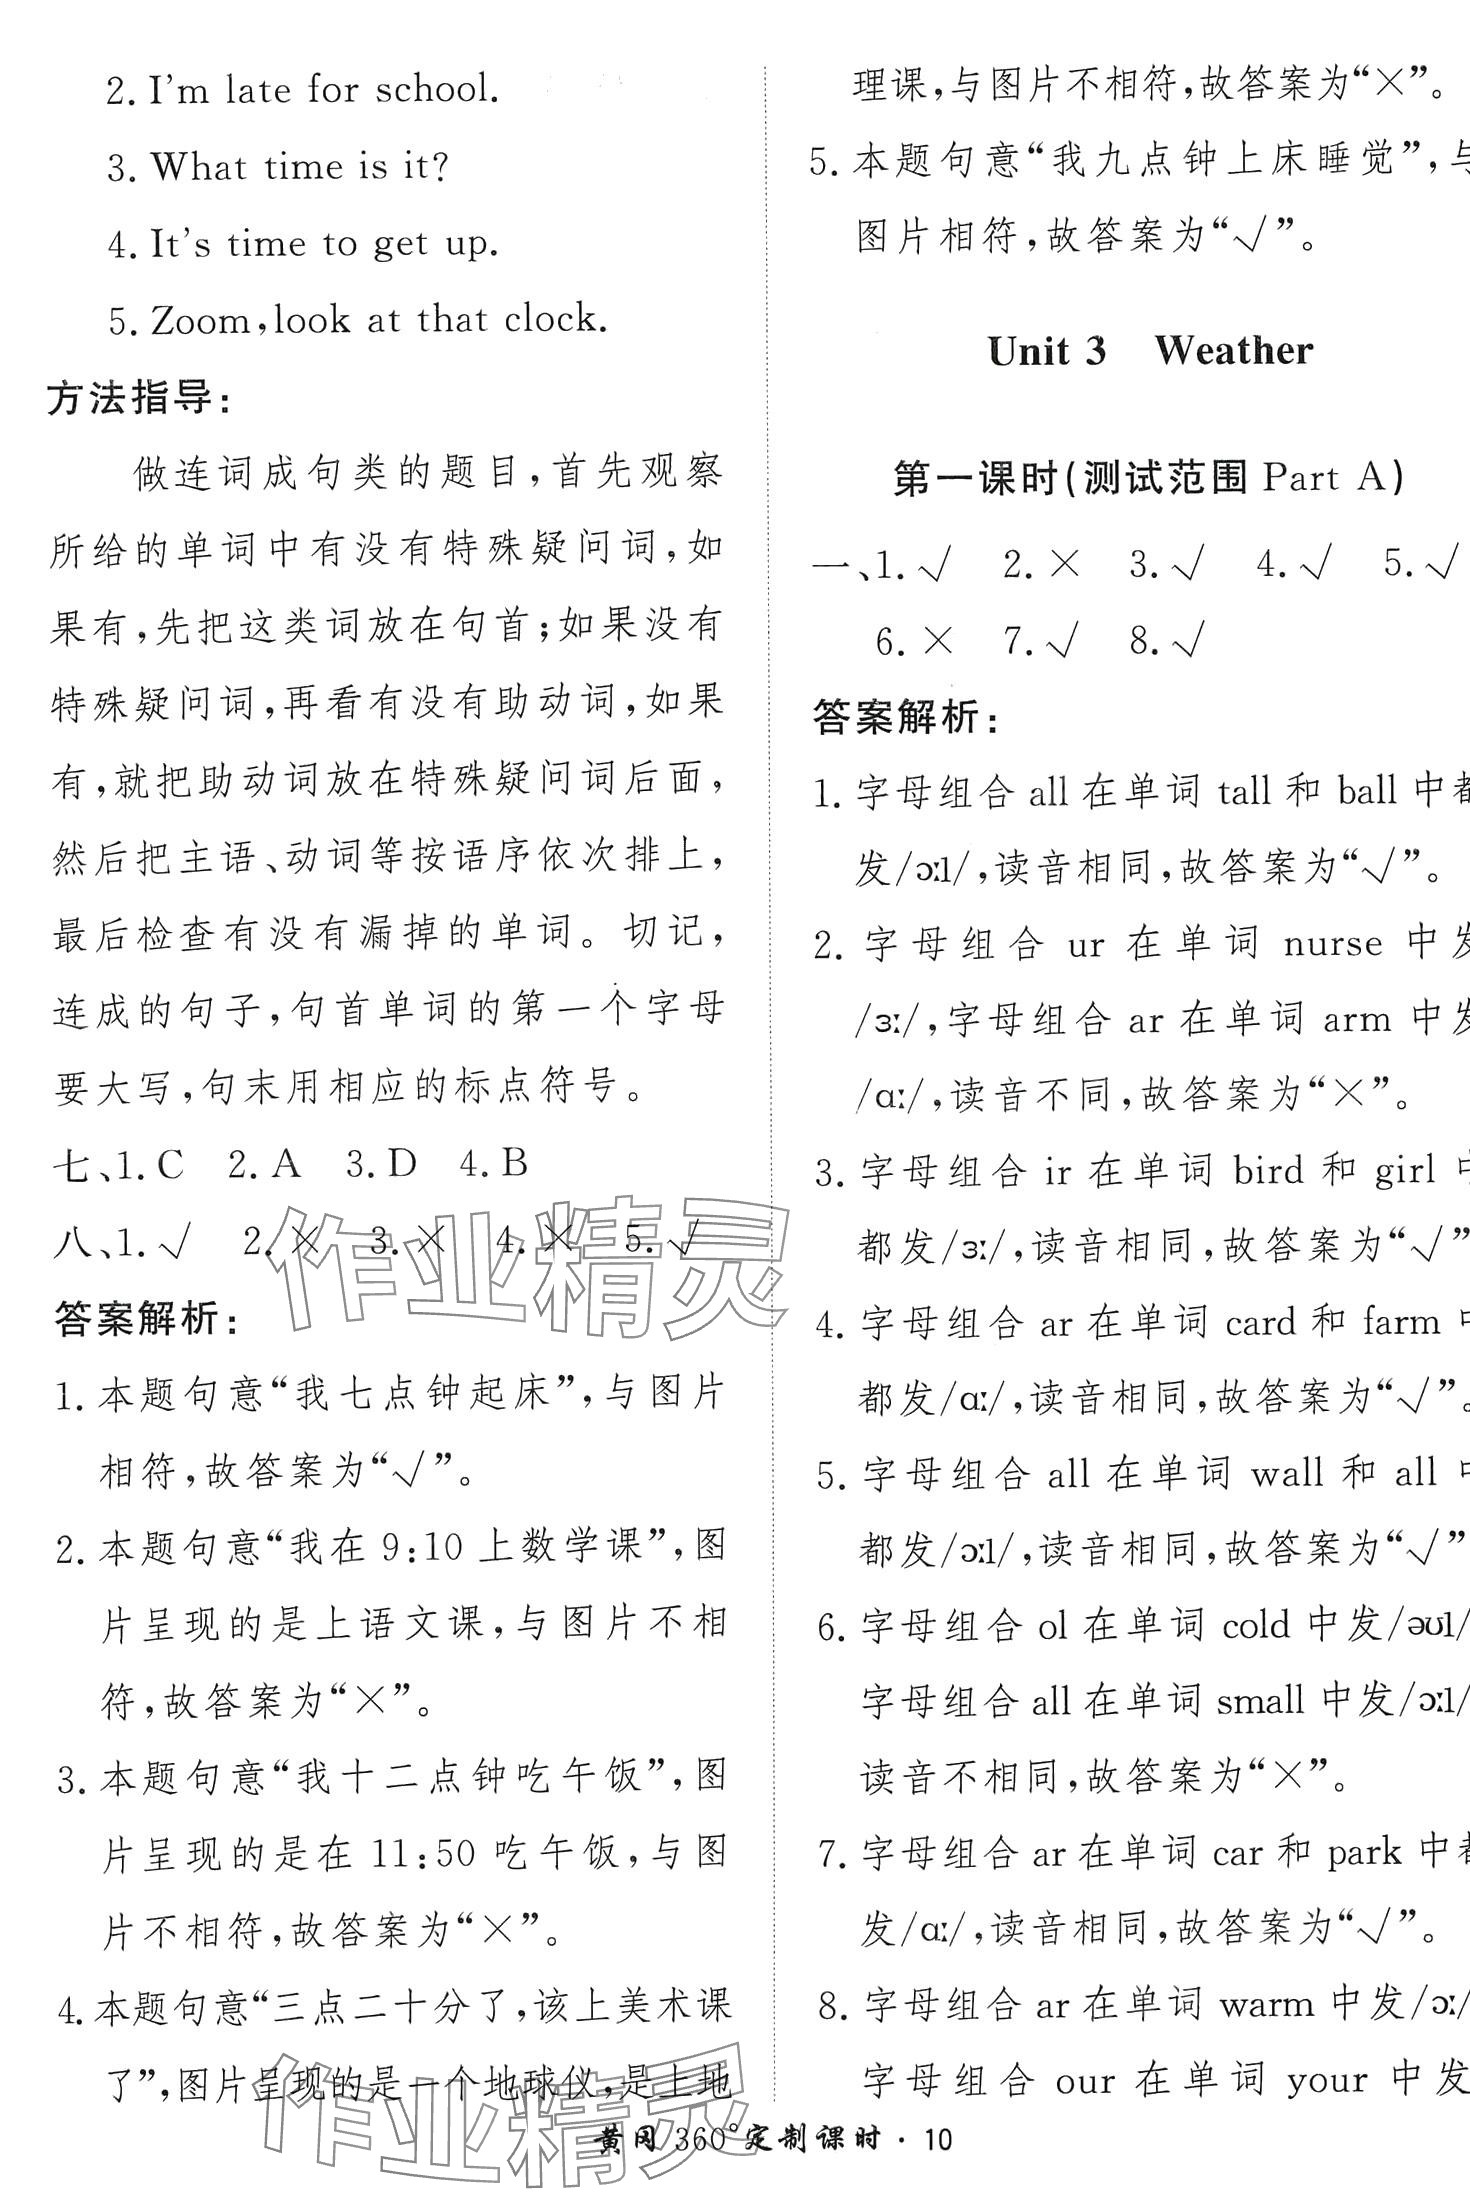 2. I'm late for school.
3. What time is it?
4. It's time to get up.
5. Zoom,look at that clock.
方法指导:
做连词成句类的题目,首先观察
所给的单词中有没有特殊疑问词,如
果有,先把这类词放在句首;如果没有
特殊疑问词,再看有没有助动词,如果
有,就把助动词放在特殊疑问词后面,
然后把主语、动词等按语序依次排上,
最后检查有没有漏掉的单词。切记,
连成的句子,句首单词的第一个字母
要大写,句末用相应的标点符号。
七、1. C 2. A 3. D 4. B
八、1. √ 2. × 3. × 4. × 5. √
答案解析:
1. 本题句意“我七点钟起床”,与图片
相符,故答案为“√”。
2. 本题句意“我在 9:10 上数学课”,图
片呈现的是上语文课,与图片不相
符,故答案为“×”。
3. 本题句意“我十二点钟吃午饭”,图
片呈现的是在 11:50 吃午饭,与图
片不相符,故答案为“×”。
4. 本题句意“三点二十分了,该上美术课
了”,图片呈现的是一个地球仪,是上地
理课,与图片不相符,故答案为“×”。
5. 本题句意“我九点钟上床睡觉”,与
图片相符,故答案为“√”。
Unit 3 Weather
第一课时(测试范围 Part A)
一、1. √ 2. × 3. √ 4. √ 5. √
6. × 7. √ 8. √
答案解析:
1. 字母组合 all 在单词 tall 和 ball 中都
发/ɔːl/,读音相同,故答案为“√”。
2. 字母组合 ur 在单词 nurse 中发
/ɜː/,字母组合 ar 在单词 arm 中发
/ɑː/,读音不同,故答案为“×”。
3. 字母组合 ir 在单词 bird 和 girl 中
都发/ɜː/,读音相同,故答案为“√”
4. 字母组合 ar 在单词 card 和 farm 中
都发/ɑː/,读音相同,故答案为“√”。
5. 字母组合 all 在单词 wall 和 all 中
都发/ɔːl/,读音相同,故答案为“√”
6. 字母组合 ol 在单词 cold 中发/əʊl/
字母组合 all 在单词 small 中发/ɔːl/
读音不相同,故答案为“×”。
7. 字母组合 ar 在单词 car 和 park 中都
发/ɑː/,读音相同,故答案为“√”。
8. 字母组合 ar 在单词 warm 中发/ɔː/
字母组合 our 在单词 your 中发
黄冈 360°定制课时 · 10
作业精灵
作业精灵